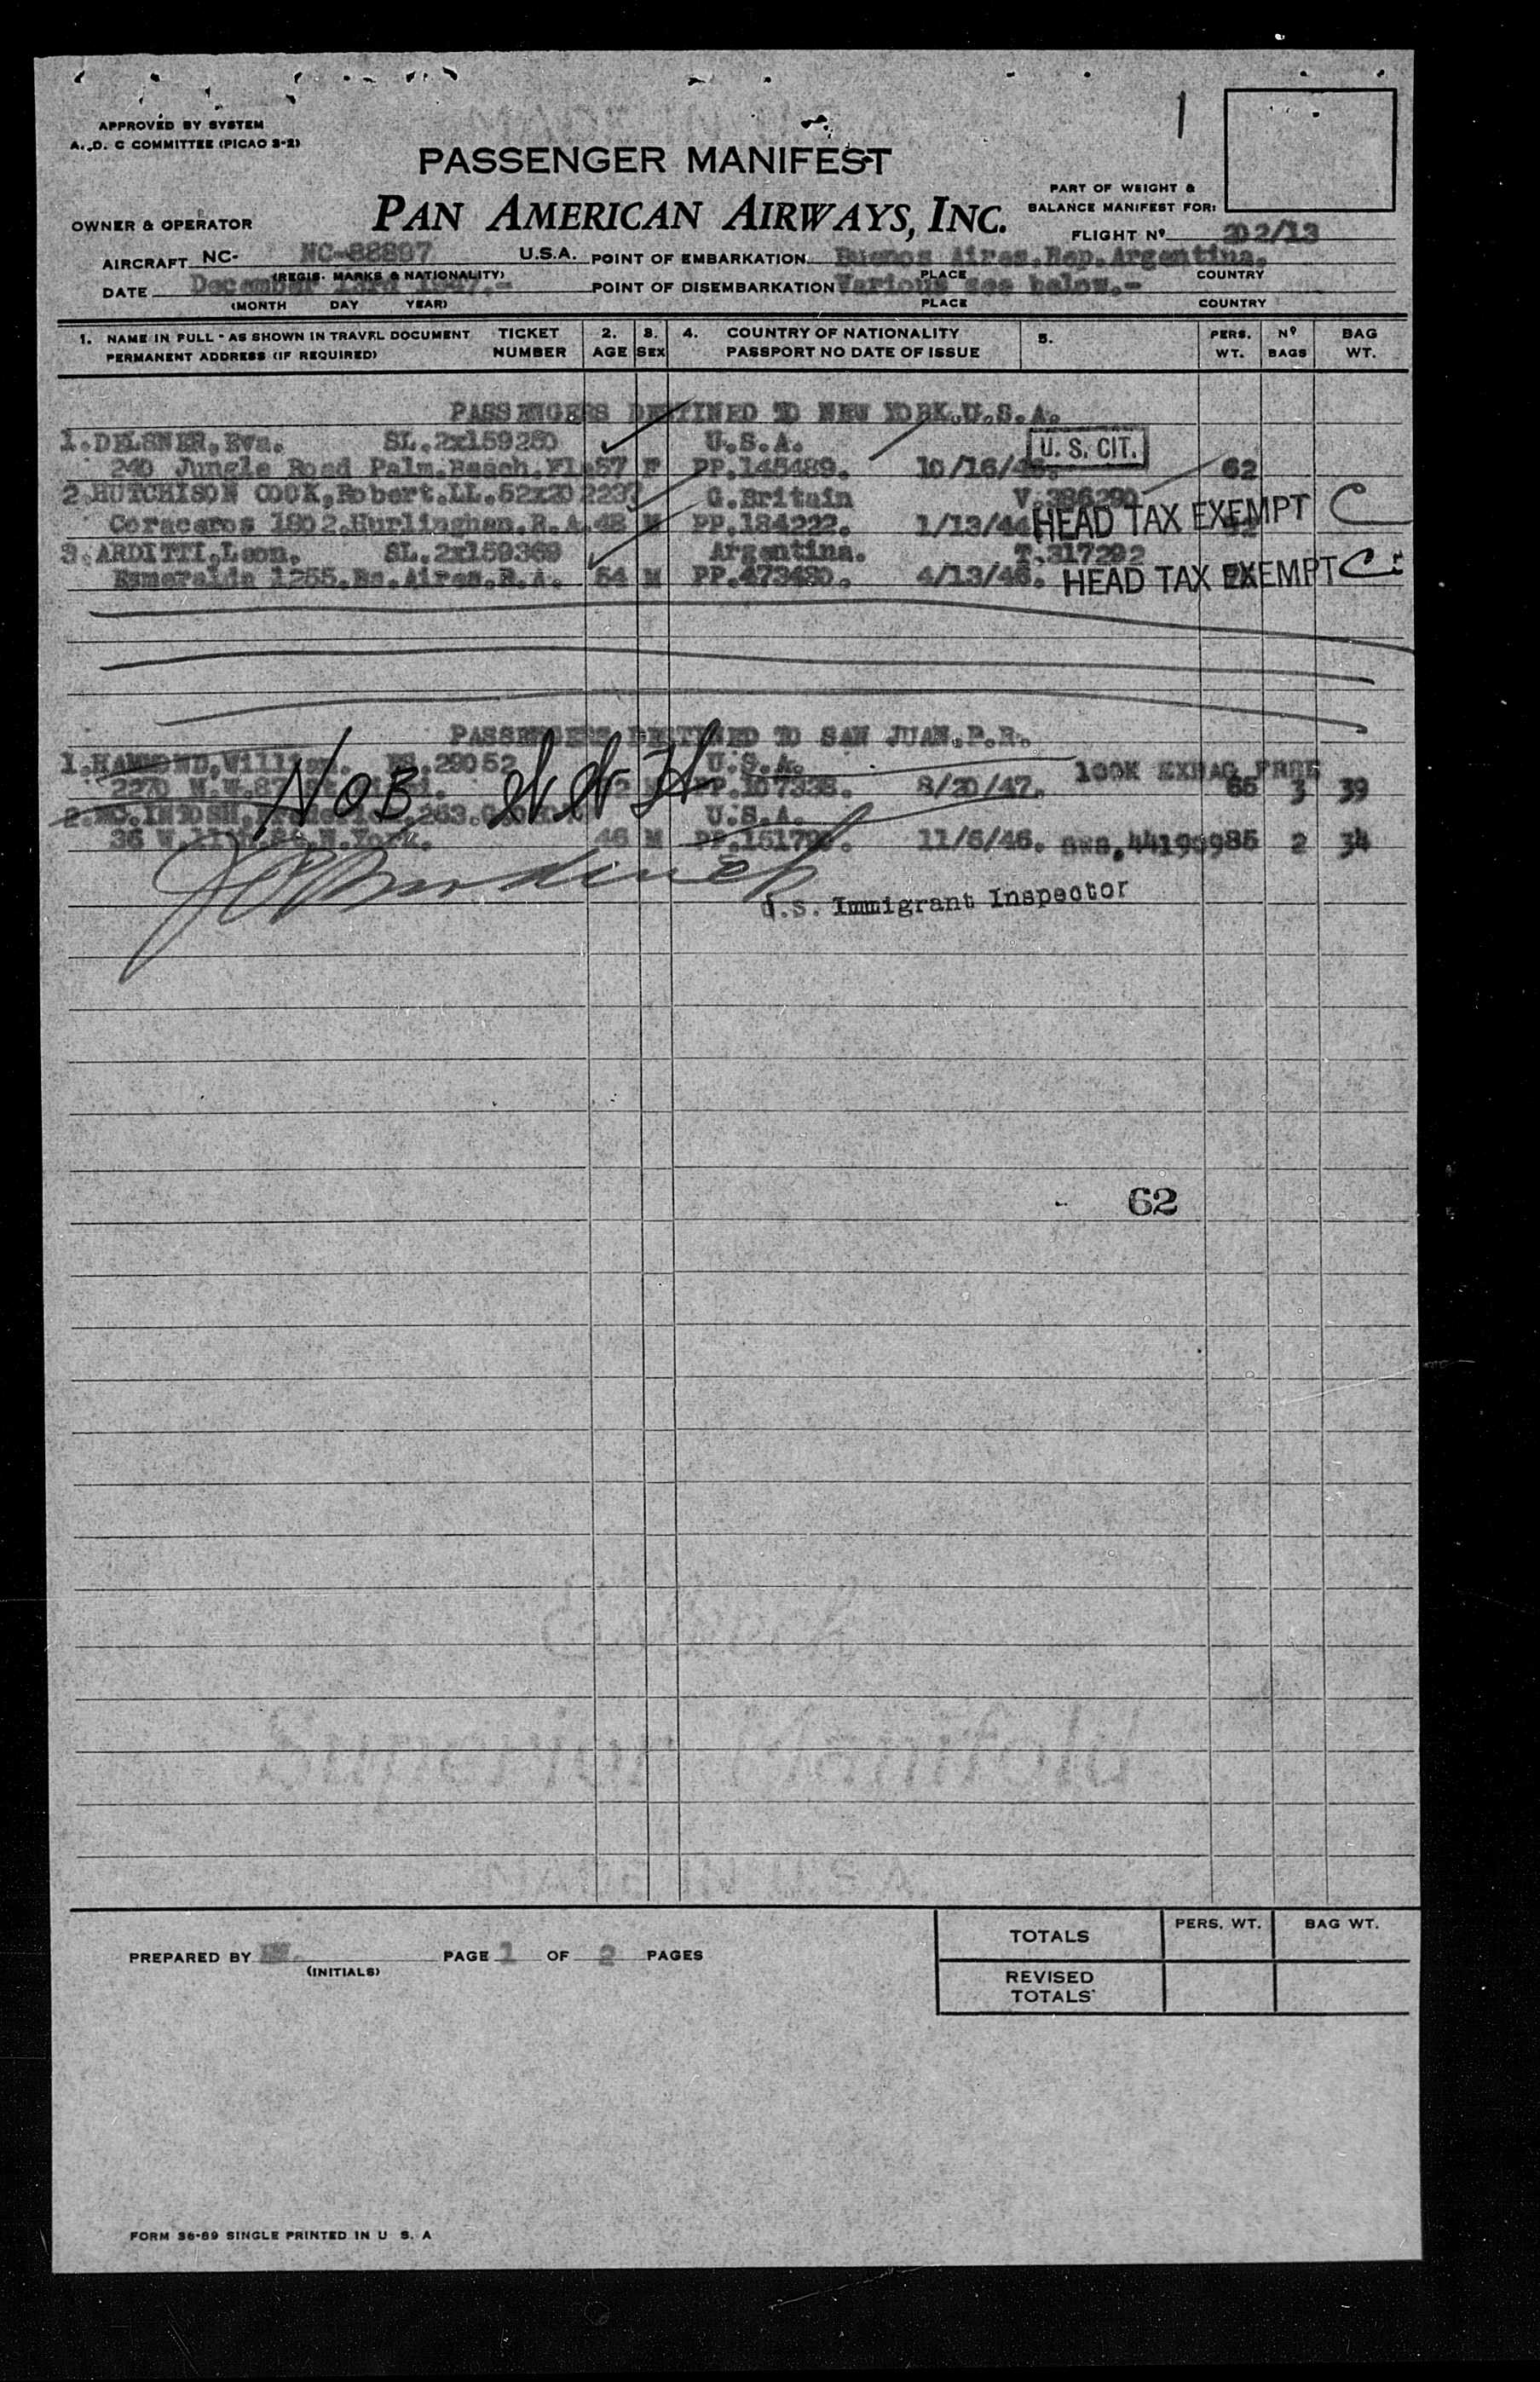 1
APPROVED BY SYSTEM
A. D. C COMMITTEE (PICAO 3-2)
PASSENGER MANIFEST
PAN AMERICAN AIRWAYS, INC.
PART OF WEIGHT &
BALANCE MANIFEST FOR:
OWNER & OPERATOR
FLIGHT Nº 202/13
AIRCRAFT NC- NC-88897 U.S.A. POINT OF EMBARKATION Buenos Aires.Rep.Argentina.
(REGIS. MARKS & NATIONALITY) PLACE COUNTRY
DATE December 13rd 1947.- POINT OF DISEMBARKATION Various see below.-
(MONTH DAY YEAR) PLACE COUNTRY
1. NAME IN FULL - AS SHOWN IN TRAVEL DOCUMENT TICKET 2. 3. 4. COUNTRY OF NATIONALITY 5. PERS. Nº BAG
PERMANENT ADDRESS (IF REQUIRED) NUMBER AGE SEX PASSPORT NO DATE OF ISSUE WT. BAGS WT.
PASSENGERS DESTINED TO NEW YORK.U.S.A.
1.DELSNER,Eva. SL.2x159280 U.S.A. U. S. CIT.
240 Jungle Road Palm.Beach.Fl. 57 F PP.145489. 10/16/46. 62
2.HUTCHISON COOK,Robert.LL.52x202237 G.Britain V.386290
Coraceros 1802.Hurlinghan.R.A. 48 M PP.184222. 1/13/44 HEAD TAX EXEMPT C
3.ARDITTI,Leon. SL.2x159369 Argentina. T.317292
Esmeralda 1255.Bs.Aires.R.A. 54 M PP.473480. 4/13/46. HEAD TAX EXEMPT C
PASSENGERS DESTINED TO SAN JUAN.P.R.
1.HAMMOND,William. 29052 U.S.A. 100K EXBAG FREE
2270 N.W. M PP.107338. 8/20/47. 66 3 39
NOB
2.MC.INTOSH,Frederick. 263. U.S.A.
36 W. St.N.York. 46 M PP.15179 . 11/6/46. 85 2 34
U.S. Immigrant Inspector
62
Superior Manifold
MADE IN U.S.A.
TOTALS PERS. WT. BAG WT.
PREPARED BY PAGE 1 OF 2 PAGES
(INITIALS)
REVISED
TOTALS
FORM 36-89 SINGLE PRINTED IN U S. A